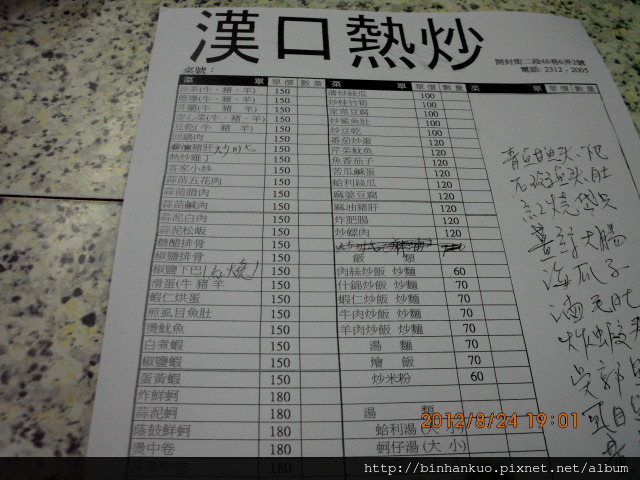 漢口熱炒
開封街二段46巷6弄2號
電話: 2312 - 2005
桌號:
菜 單 單價 數量
沙茶(牛、豬、羊) 150
空心菜(牛、豬、羊) 150
豆乾(牛、豬、羊) 150
回鍋肉 150
薑爆豬肝 150
熱炒雞丁 150
客家小炒 150
蒜苗五花肉 150
蒜苗腊肉 150
蒜苗鹹肉 150
蒜泥白肉 150
蒜泥松板 150
糖醋排骨 150
椒鹽排骨 150
椒鹽下巴 (紅燒) 150
滑蛋(牛 豬 羊 150
蝦仁烘蛋 150
煎虱目魚肚 150
燙魷魚 150
白煮蝦 150
椒鹽蝦 150
蛋黃蝦 150
炸鮮蚵 180
蒜泥蚵 180
蔭鼓鮮蚵 180
燙中卷 180
180
菜 單 單價 數量
清炒絲瓜 100
炒桂竹筍 100
家常豆腐 100
炒鯊魚肚 100
炒豆乾 100
番茄炒蛋 120
芹菜魷魚 120
魚香茄子 120
苦瓜鹹蛋 120
蛤利絲瓜 120
麻婆豆腐 120
麻油豬肝 120
炸肥腸 120
炒螺肉 120
飯 類
肉絲炒飯 炒麵 60
什錦炒飯 炒麵 70
蝦仁炒飯 炒麵 70
牛肉炒飯 炒麵 70
羊肉炒飯 炒麵 70
湯 麵 70
燴 飯 70
炒米粉 60
湯 類
蛤利湯(大 小)
蚵仔湯(大 小)
菜 單 單價 數量
紅燒
薑絲大腸
海瓜子
2012/8/24 19:01
http://binhankuo.pixnet.net/album